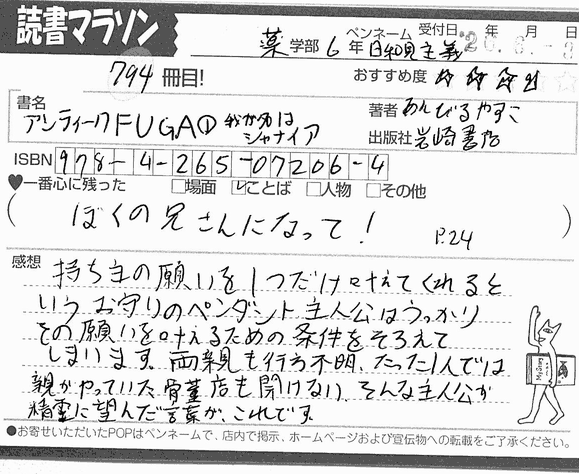 読書マラソン
受付日
ペンネーム '20年6月-8日
薬学部6年 日和見主義
794冊目!
おすすめ度 ☆☆☆☆☆
書名 著者 あんびるやすこ
アンティークFUGA① 我が名はシャナイア
出版社 岩崎書店
ISBN 978-4-265-07206-4
♥一番心に残った □場面 ☑ことば □人物 □その他
(ぼくの兄さんになって! P.24)
感想
持ち主の願いを1つだけ叶えてくれると
いうお守りのペンダント 主人公はうっかり
その願いを叶えるための条件をそろえて
しまいます。両親も行方不明、たった1人では
親がやっていた骨董店も開けない、そんな主人公が
精霊に望んだ言葉が、これです。
●お寄せいただいたPOPはペンネームで、店内で掲示、ホームページおよび宣伝物への転載をご了承ください。